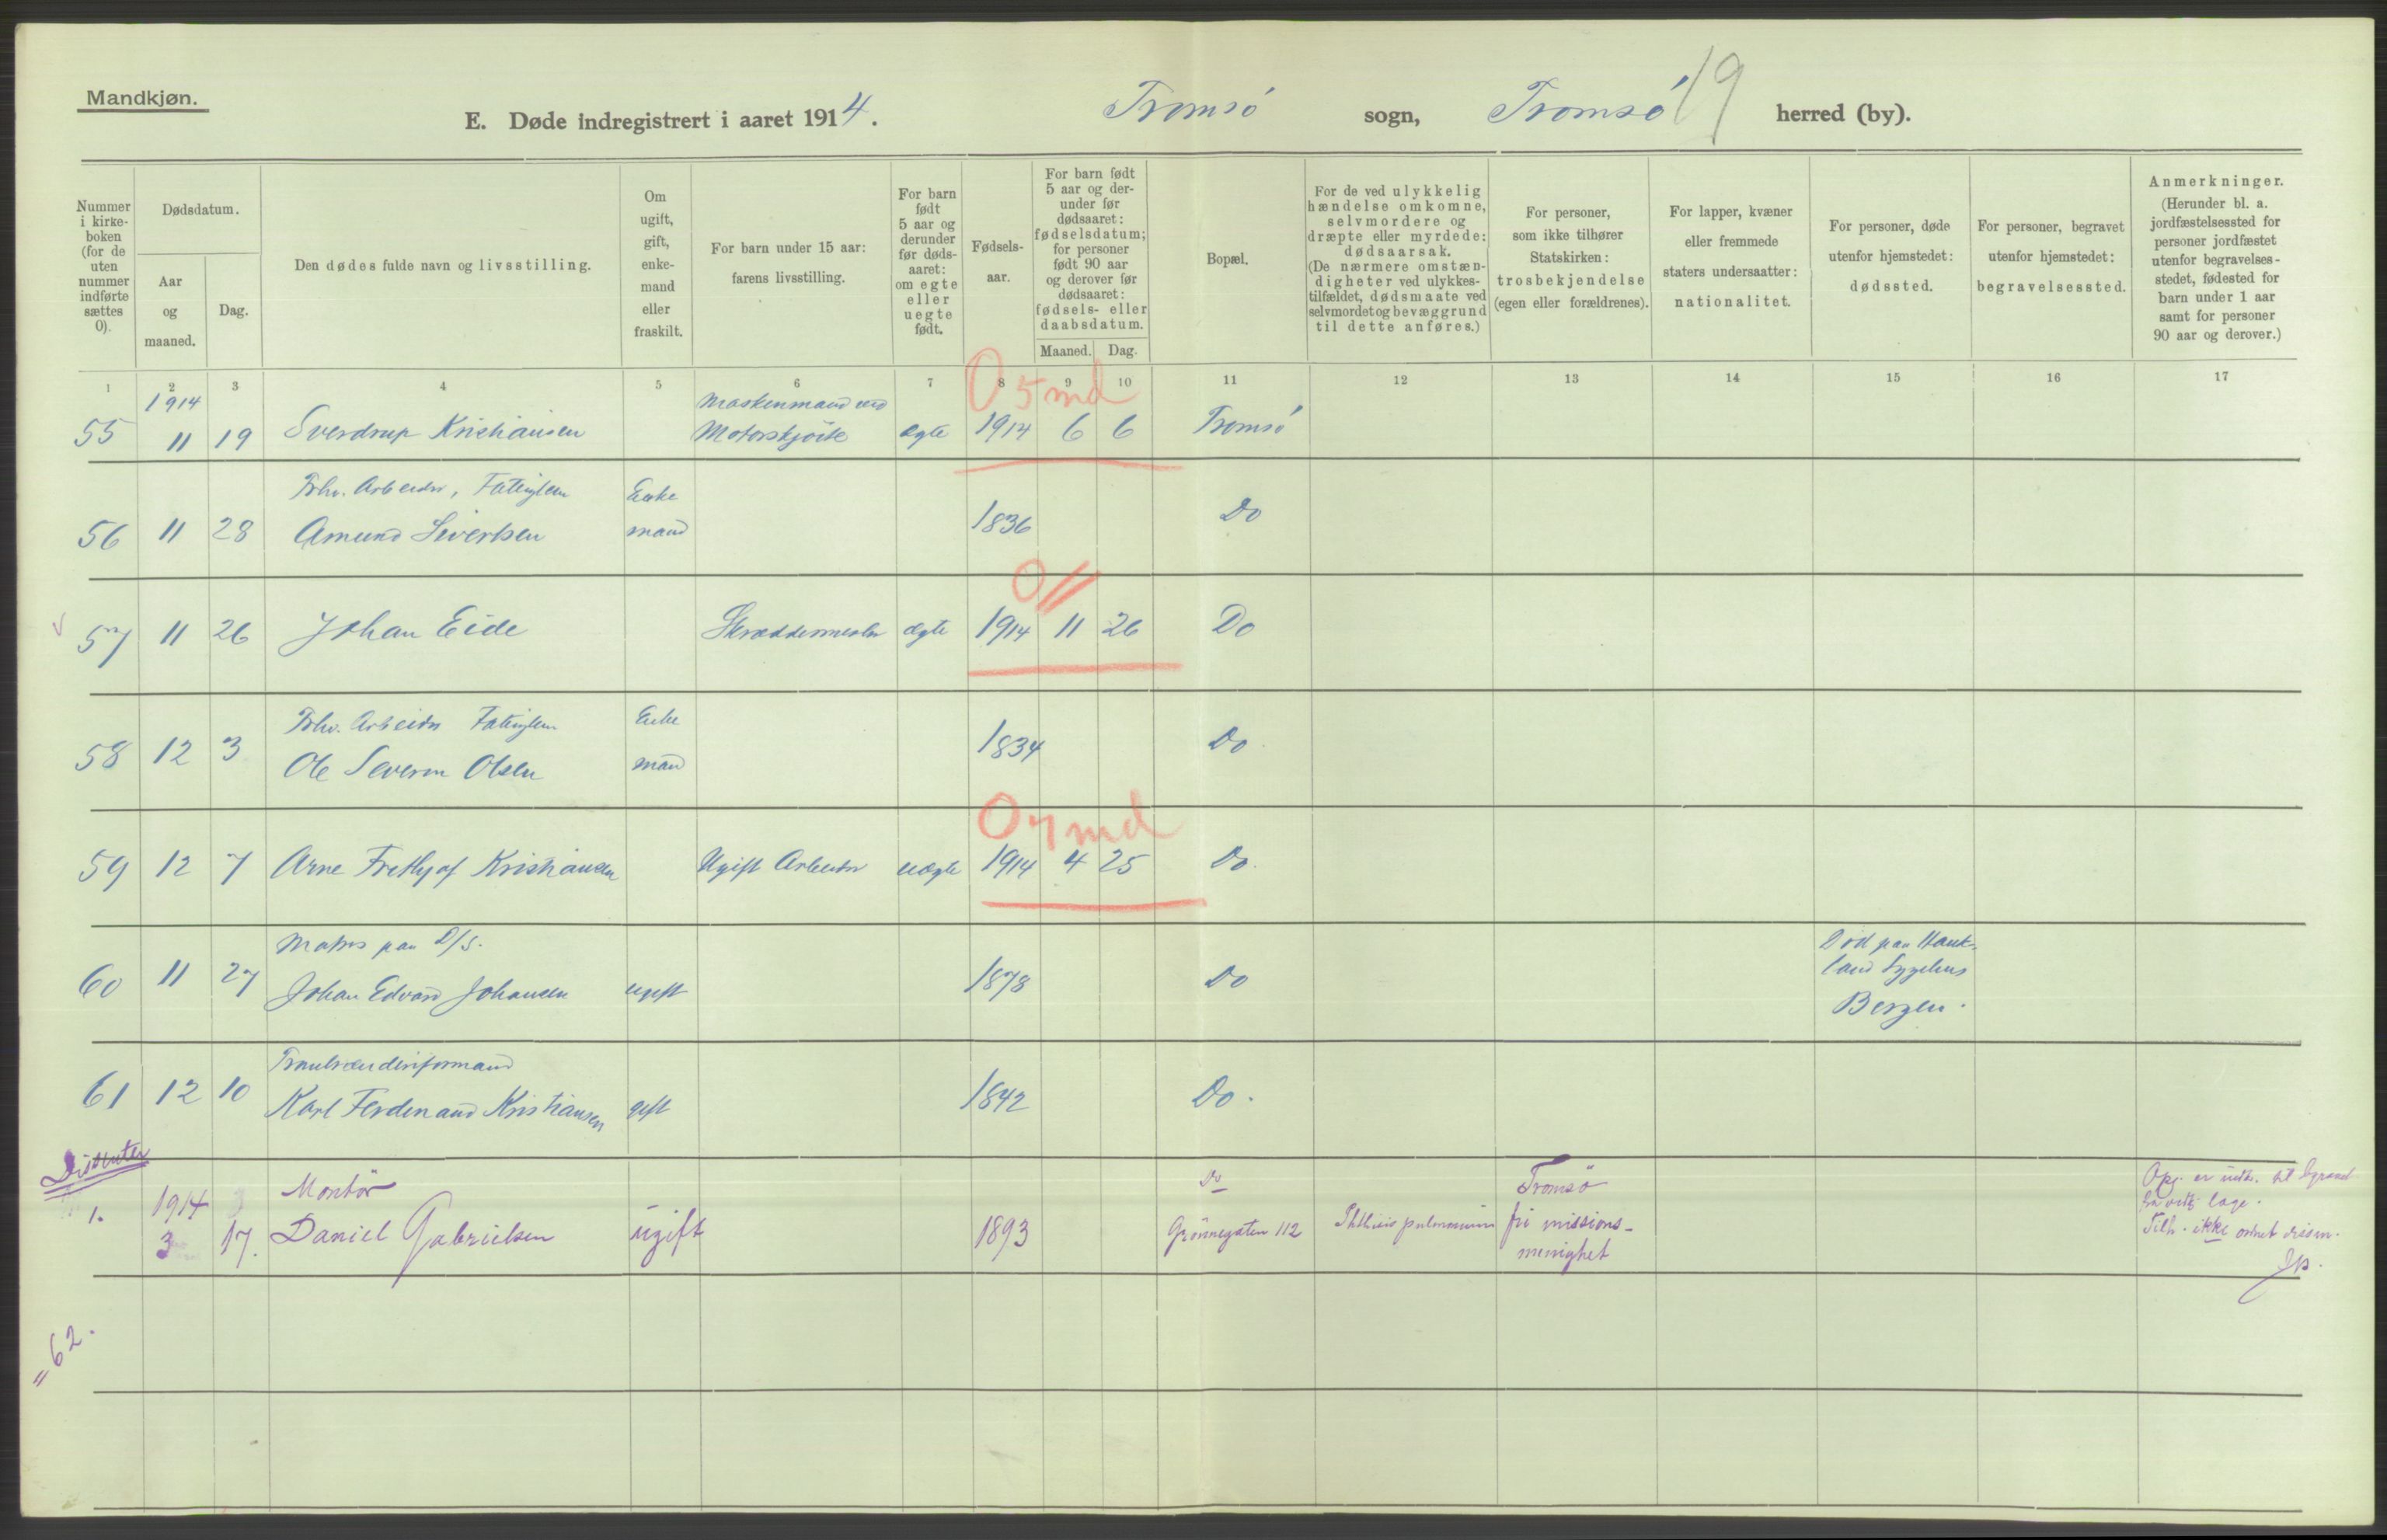 Mandkjøn.
E. Døde indregistrert i aaret 1914. Tromsø sogn, Tromsø herred (by). 19
Nummer i kirke-boken (for de uten nummer indførte sættes 0).
Dødsdatum.
Aar og maaned.
Dag.
Den dødes fulde navn og livsstilling.
Om ugift, gift, enke-mand eller fraskilt.
For barn under 15 aar: farens livsstilling.
For barn født 5 aar og derunder før døds-aaret: om egte eller uegte født.
Fødsels-aar.
For barn født 5 aar og der-under før dødsaaret: fødselsdatum; for personer født 90 aar og derover før dødsaaret: fødsels- eller daabsdatum.
Maaned. Dag.
Bopæl.
For de ved ulykkelig hændelse omkomne, selvmordere og dræpte eller myrdede: dødsaarsak. (De nærmere omstæn-digheter ved ulykkes-tilfældet, dødsmaate ved selvmordet og bevæggrund til dette anføres.)
For personer, som ikke tilhører Statskirken: trosbekjendelse (egen eller forældrenes).
For lapper, kvæner eller fremmede staters undersaatter: nationalitet.
For personer, døde utenfor hjemstedet: dødssted.
For personer, begravet utenfor hjemstedet: begravelsessted.
Anmerkninger. (Herunder bl. a. jordfæstelsessted for personer jordfæstet utenfor begravelses-stedet, fødested for barn under 1 aar samt for personer 90 aar og derover.)
1 2 3 4 5 6 7 8 9 10 11 12 13 14 15 16 17
0 5 md
1914 Maskinmand ved
55 11 19 Sverdrup Kristiansen Motorskjöite ægte 1914 6 6 Tromsö
Fhv. Arbeider, Fattiglem Enke
56 11 28 Amund Sivertsen mand 1836 Do
0 //
57 11 26 Johan Eide Skræddermester ægte 1914 11 26 Do
Fhv. Arbeider Fattiglem Enke
58 12 3 Ole Severin Olsen mand 1834 Do
0 7 md
59 12 7 Arne Frithjof Kristiansen Ugift Arbeider uægte 1914 4 25 Do.
Matros paa D/S. Död paa Hauk-
60 11 27 Johan Edvard Johansen ugift 1878 Do land Sygehus
Bergen.
Tranbrænderiformand
61 12 10 Karl Ferdinand Kristiansen gift 1842 Do.
Dissenter
1914 Montör Do Tromsö
1. 3 17. Daniel Gabrielsen ugift 1893 Grönnegaten 112 Phthisis pulmonum fri missions-
menighet
Tilh. ikke
= 62.